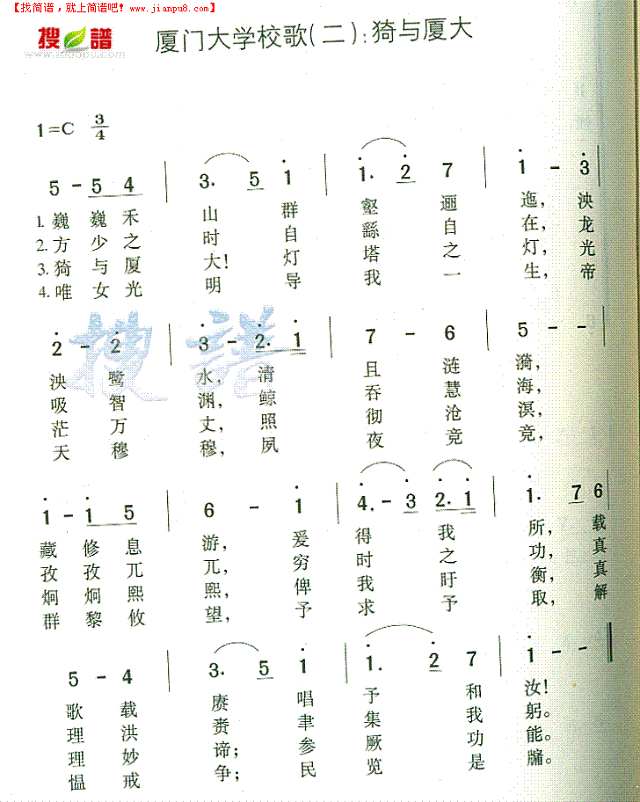 【找简谱，就上简谱吧！ www.jianpu8.com】
搜谱
www.sooopu.com
厦门大学校歌(二):猗与厦大
1=C 3/4
5 - 5 4 | 3. 5 1 | 1. 2 7 | 1 - 3 |
1. 巍 巍 禾 山 群 壑 逦 迤, 泱
2. 方 少 之 时 自 繇 自 在, 龙
3. 猗 与 厦 大! 灯 塔 之 灯, 光
4. 唯 女 光 明 导 我 一 生, 帝
2 - 2 | 3 - 2. 1 | 7 - 6 | 5 - - |
泱 鹭 水, 清 且 涟 漪,
吸 智 渊, 鲸 吞 慧 海,
茫 万 丈, 照 彻 沧 溟,
天 穆 穆, 夙 夜 竞 竞,
1 - 1 5 | 6 - 1 | 4. - 3 2. 1 | 1. 7 6 |
藏 修 息 游, 爰 得 我 所, 载
孜 孜 兀 兀, 穷 时 之 功, 真
炯 炯 熙 熙, 俾 我 盱 衡, 真
群 黎 攸 望, 予 求 予 取, 解
5 - 4 | 3. 5 1 | 1. 2 7 | 1 - - ‖
歌 载 赓 唱 予 和 汝!
理 洪 赉 聿 集 我 躬。
理 妙 谛; 参 厥 功 能。
愠 戒 争; 民 览 是 牖。